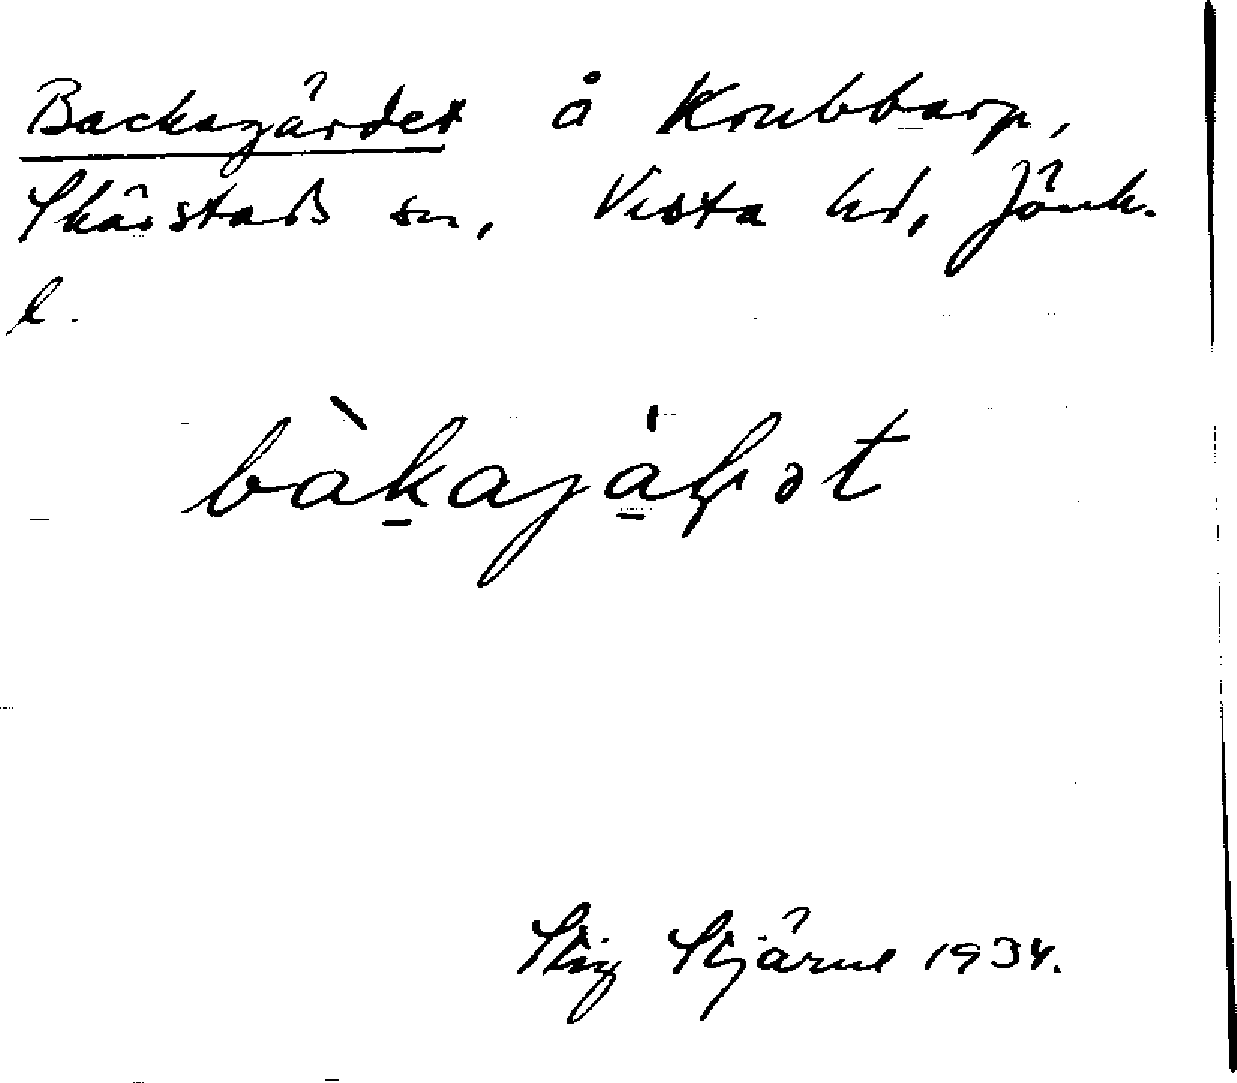 Backagärdet å Krubbarp,
Skärstads sn, Vista hd, Jönk.
l.
Stig Stjärne 1934.